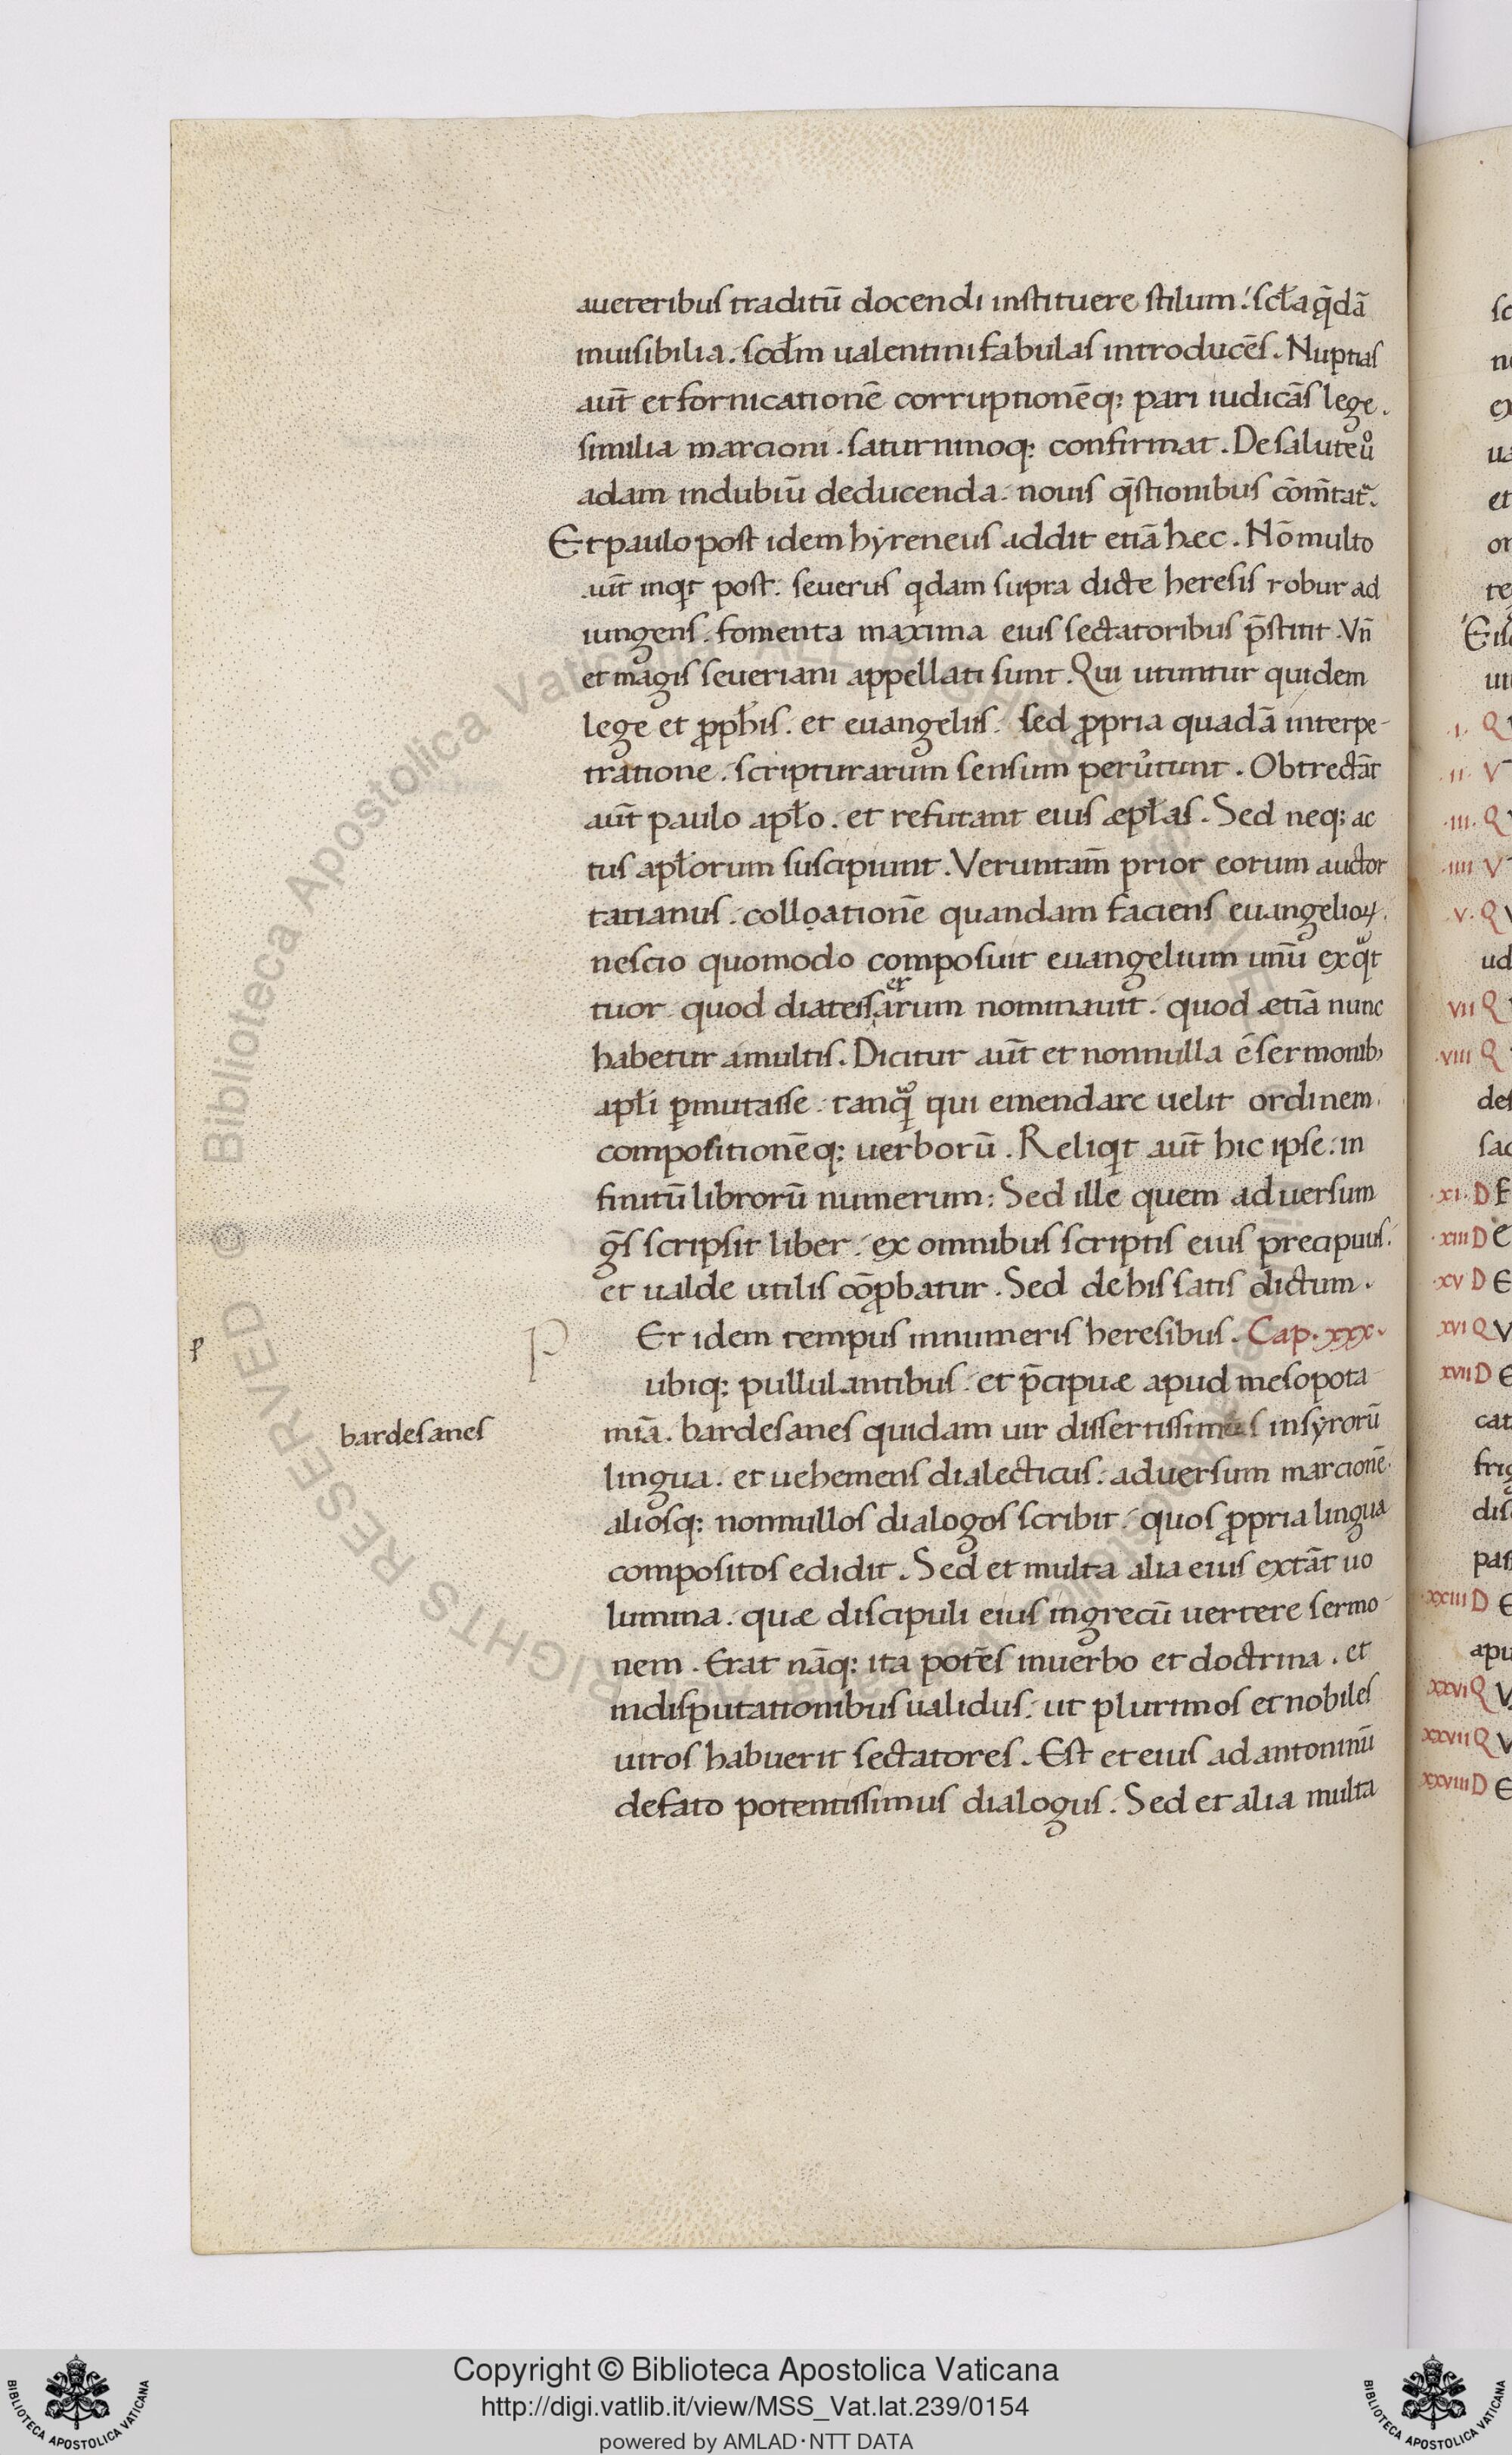 aueteribus traditū docendi instituere stilum. scła q̄dā
inuisibilia. scdm ualentini fabulas introducēs. Nuptias
aut̄ et fornicationē corruptionēq; pari iudicās lege.
similia marcioni. saturninoq; confirmat. De salute uº
adam indubiū deducenda. nouis q̄stionibus cōm̄tat᷑.
Et paulo post idem hyreneus addit etiā hæc. Nō multo
uīt inqt post. seuerus qdam supra dicte heresis robur ad
iungens. fomenta maxima eius sectatoribus p̄stitit. Vn̄
et magis seueriani appellati sunt. Qui utuntur quidem
lege et ꝓphis. et euangeliis. sed ꝓpria quadā interpe-
tratione. scripturarum sensum peruͦtunt. Obtrectāt
aut̄ paulo apło. et refutant eius æpłas. Sed neq; ac
tus apłorum suscipiunt. Veruntam̄ prior eorum auctor
tatianus. colloationē quandam faciens euangelioꝝ.
nescio quomodo composuit euangelium unū ex qͣt
tuor. quod diatessarum nominauit. quod ætiā nunc
er
habetur amultis. Dicitur aut̄ et nonnulla ē sermonib;
apłi ꝑmutasse. tanq̄ qui emendare uelit ordinem
compositionēq; uerborū. Reliqt aut̄ hic ipse. in
finitū librorū numerum; Sed ille quem aduersum
ḡs scripsit liber. ex omnibus scriptis eius precipuus.
et ualde utilis cōꝓbatur. Sed de his satis dictum.
p
P
Er idem tempus innumeris heresibus. Cap. xxx.
ubiq; pullulantibus. et p̄cipuæ apud mesopota
bardesanes
miā. bardesanes quidam uir dissertissimus insyrorū
lingua. et uehemens dialecticus. aduersum marcionē
aliosq; nonnullos dialogos scribit. quos ꝓpria lingua
compositos edidit. Sed et multa alia eius extāt uo
lumina. quæ discipuli eius ingrecū uertere sermo-
nem. Erat nāq; ita potēs inuerbo et doctrina. et
indisputationibus ualidus. ut plurimos et nobiles
uiros habuerit sectatores. Est et eius ad antoninū
defato potentissimus dialogus. Sed et alia multa
Biblioteca Apostolica Vaticana
ALL RIGHTS RESERVED ©
Copyright © Biblioteca Apostolica Vaticana
http://digi.vatlib.it/view/MSS_Vat.lat.239/0154
powered by AMLAD·NTT DATA
BIBLIOTECA APOSTOLICA VATICANA
BIBLIOTECA APOSTOLICA VATICANA